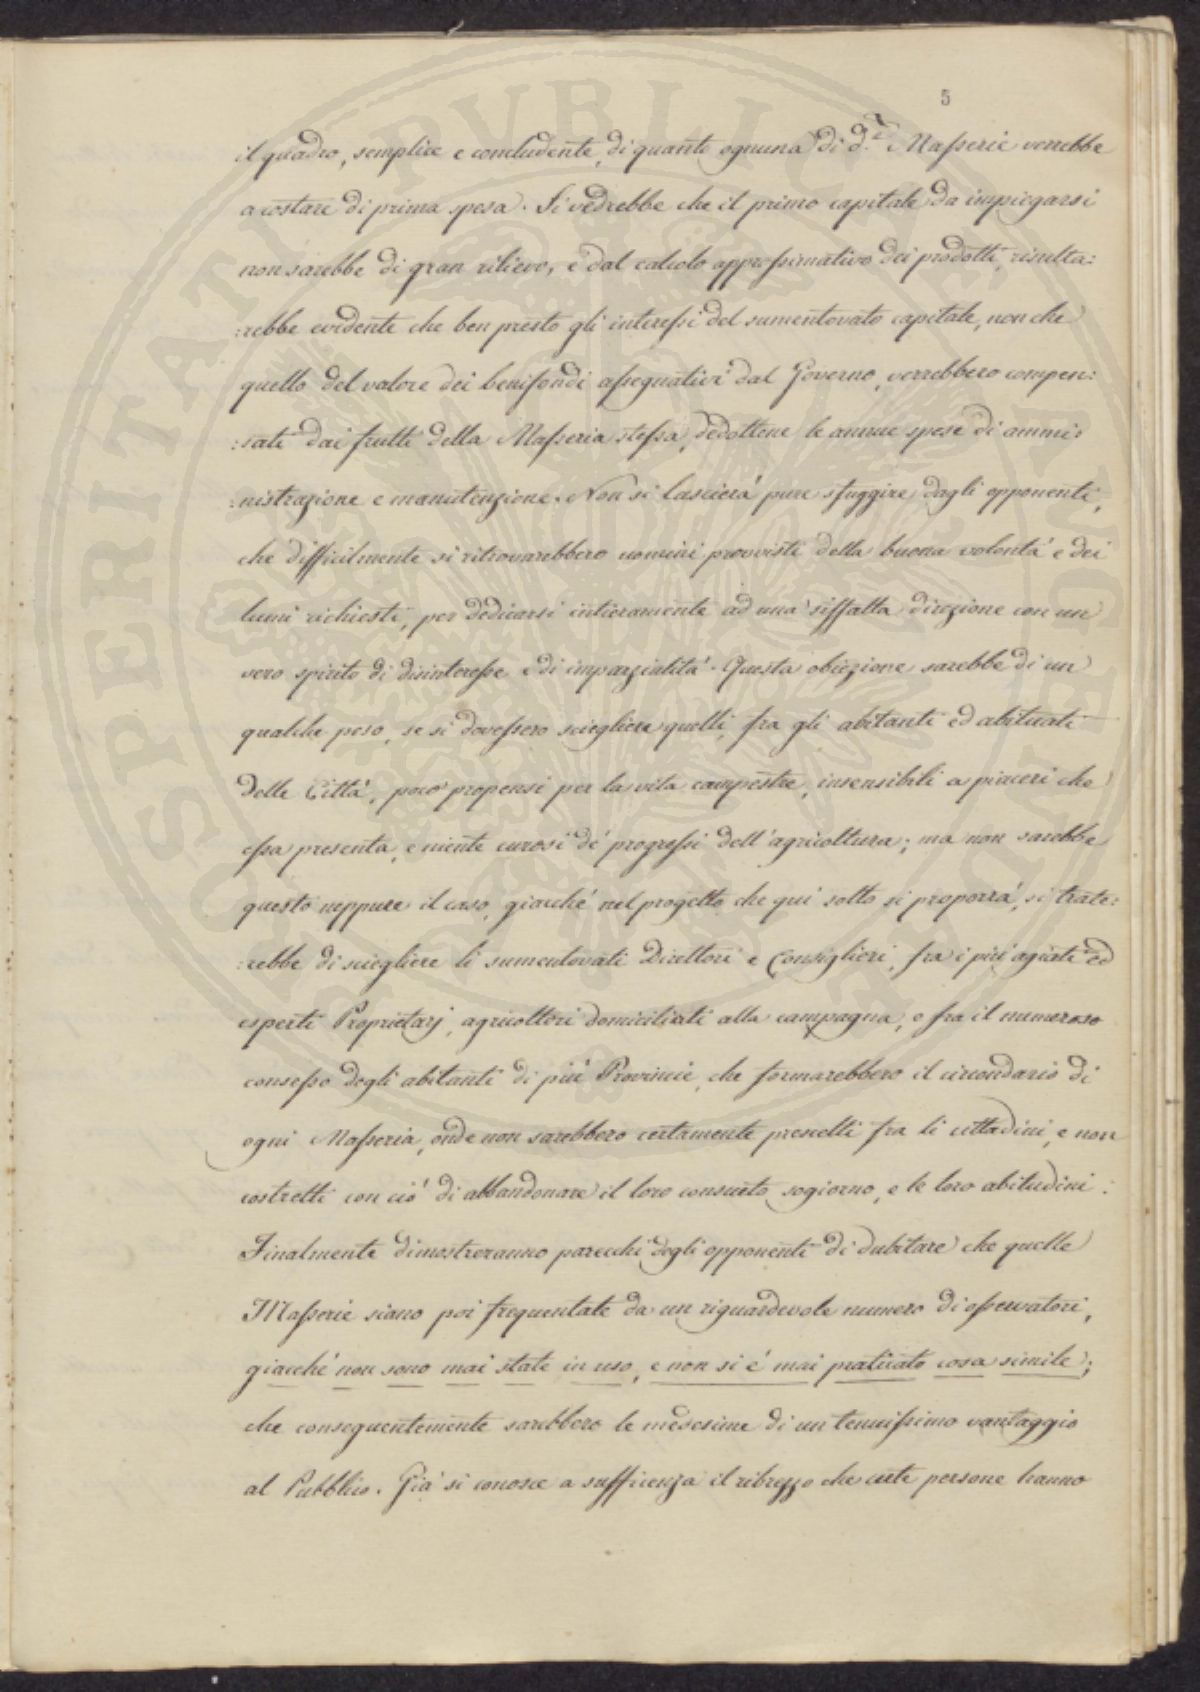 5
il quadro, semplice e concludente, di quanto ognuna di d.e Masserie verrebbe
a costare di prima spesa. Si vedrebbe che il primo capitale da impiegarsi
non sarebbe di gran rilievo, e dal calcolo approssimativo dei prodotti, risulta:
:rebbe evidente che ben presto gli interessi del sumentovato capitale, non che
quello del valore dei beni fondi assegnativi dal Governo, verrebbero compen:
:sati dai frutti della Masseria stessa, dedottene le annue spese di ammi:
:nistrazione e manutenzione. Non si lascierá pure sfuggire dagli opponenti,
che difficilmente si ritrovarebbero uomini provvisti della buona volontá e dei
lumi richiesti, per dedicarsi intieramente ad una siffatta direzione con un
vero spirito di disinteresse e di imparzialitá. Questa obiezione sarebbe di un
qualche peso, se si dovessero sciegliere quelli, fra gli abitanti ed abituati
delle Cittá, poco propensi per la vita campestre, insensibili a piaceri che
essa presenta, e niente curosi de' progressi dell'agricoltura; ma non sarebbe
questo neppure il caso, giacché nel progetto che qui sotto si proporrá, si trate:
:rebbe di sciegliere li sumentovati Direttori e Consiglieri, fra i piú agiati ed
esperti Proprietarj, agricoltori domiciliati alla campagna, e fra il numeroso
consesso degli abitanti di piú Provincie, che formarebbero il circondario di
ogni Masseria, onde non sarebbero certamente prescelti fra li cittadini, e non
costretti con ció di abbandonare il loro consueto sogiorno, e le loro abitudini.
Finalmente dimostreranno parecchi degli opponenti di dubitare che quelle
Masserie siano poi frequentate da un riguardevole numero di osservatori,
giacché non sono mai state in uso, e non si é mai praticato cosa simile;
che conseguentemente sarebbero le medesime di un tenuissimo vantaggio
al Pubblico. Giá si conosce a sufficenza il ribrezzo che certe persone hanno